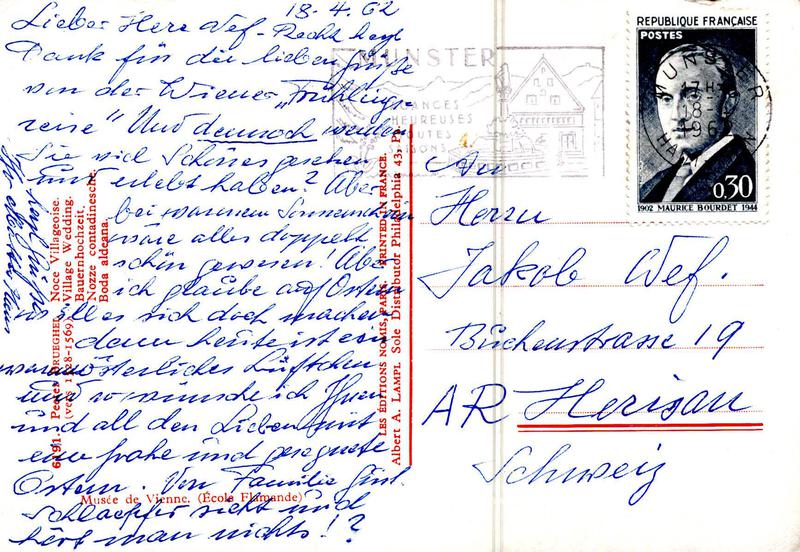 18.4.62
Lieber Herr Nef - Recht herzl.
Dank für die lieben Grüsse
von der Wiener "Frühlings
reise" Und dennoch werden
Sie viel Schönes gesehen
und erlebt haben? Aber
bei warmem Sonnenschein
wäre alles doppelt
schön gewesen! Aber
ich glaube auf Ostern
will es sich doch machen
denn heute ist ein
österliches Lüftchen
und so wünsche ich Ihnen
und all den Lieben mit
eine frohe und gesegnete
Ostern. Von Familie
Schlaepfer sieht und
hört man nichts!?
6191. Peeter BRUEGHEL Noce Villageoise.
(vers 1528-1569). Village Wedding.
Bauernhochzeit.
Nozze contadinesche.
Boda aldeana.
Musée de Vienne. (École Flamande)
LES ÉDITIONS NOMIS, PARIS. PRINTED IN FRANCE.
Albert A. LAMPL Sole Distributor Philadelphia 43, Pa.
MUNSTER
VACANCES
HEUREUSES
TOUTES
SAISONS
REPUBLIQUE FRANÇAISE
POSTES
0,30
1902 MAURICE BOURDET 1944
MUNSTER
An
Herrn
Jakob Nef.
Buchenstrasse 19
AR Herisau
Schweiz